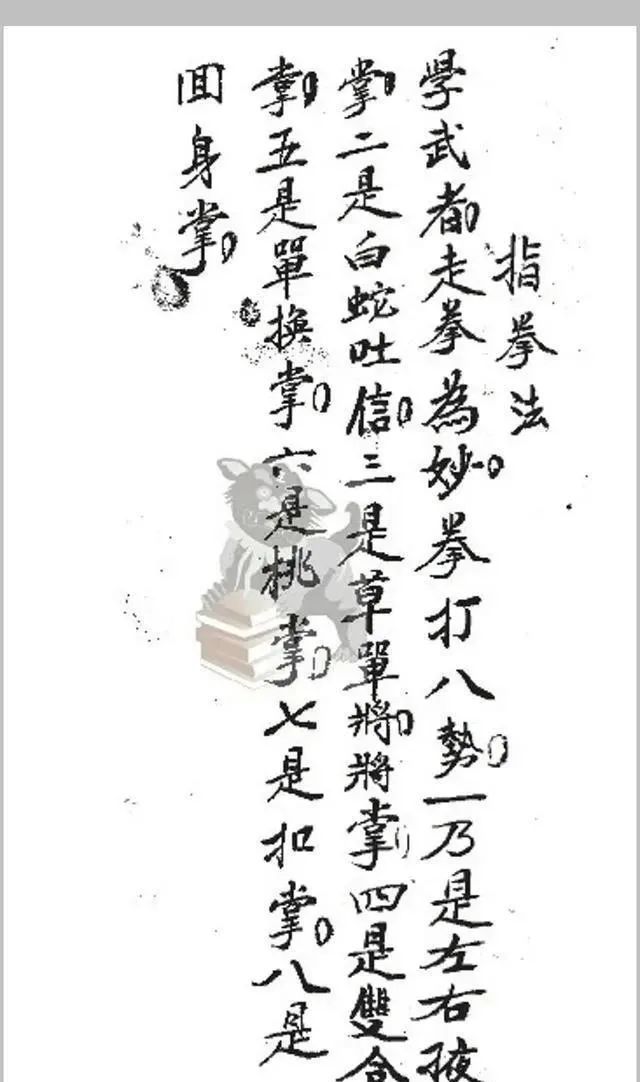 指拳法
學武都走拳為妙拳打八勢一乃是左右掖
掌二是白蛇吐信三是草單將將掌四是雙合
掌五是單換掌六是桃掌七是扣掌八是
回身掌